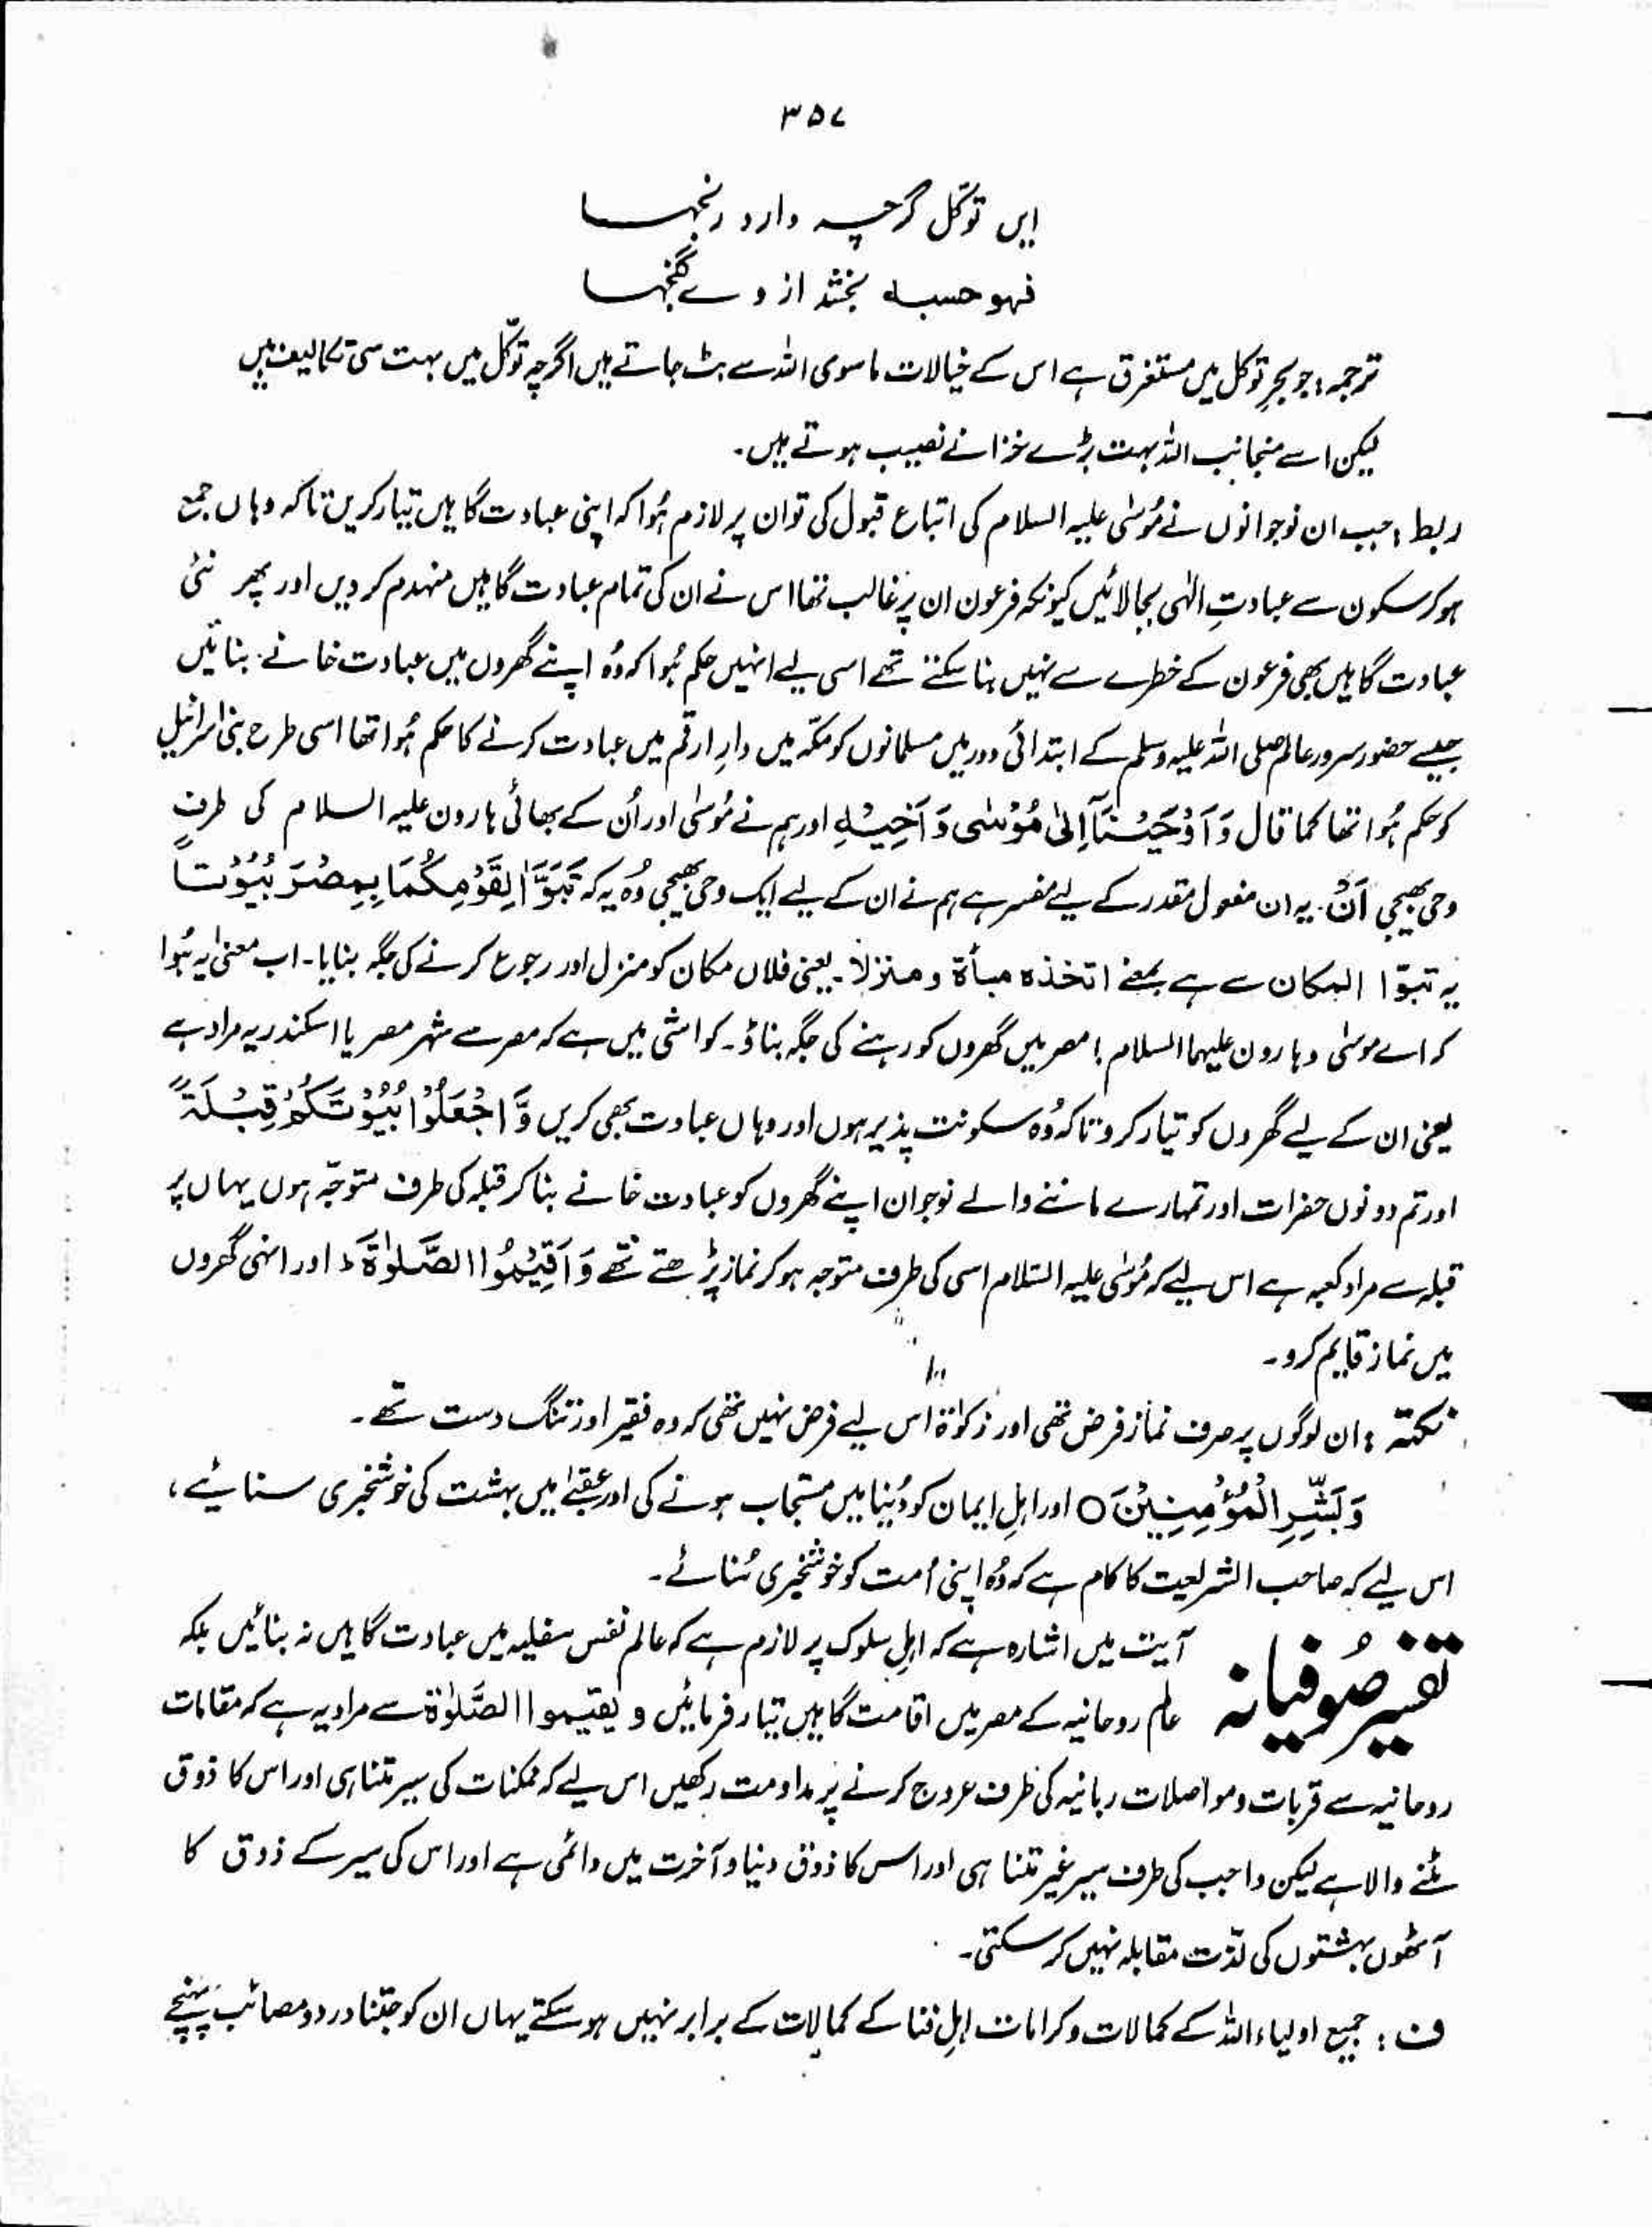 ۳۵۷
ایں توکّل گرچہ دارد رنجہا
فہو حسبہ بخشد از وے گنجہا
ترجمہ: جو بحرِ توکل میں مستغرق ہے اس کے خیالات ماسوی اللہ سے ہٹ جاتے ہیں اگرچہ توکّل میں بہت سی تکالیف ہیں
لیکن اسے منجانب اللہ بہت بڑے خزانے نصیب ہوتے ہیں۔
ربط: جب ان نوجوانوں نے مُوسٰی علیہ السلام کی اتباع قبول کی تو ان پر لازم ہُوا کہ اپنی عبادت گاہیں تیار کریں تاکہ وہاں جمع
ہو کر سکون سے عبادتِ الٰہی بجا لائیں کیونکہ فرعون ان پر غالب تھا اس نے ان کی تمام عبادت گاہیں منہدم کر دیں اور پھر نئی
عبادت گاہیں بھی فرعون کے خطرے سے نہیں بنا سکتے تھے اسی لیے انہیں حکم ہُوا کہ وُہ اپنے گھروں میں عبادت خانے بنائیں
جیسے حضور سرور عالم صلی اللہ علیہ وسلم کے ابتدائی دور میں مسلمانوں کو مکّہ میں دارِ ارقم میں عبادت کرنے کا حکم ہُوا تھا اسی طرح بنی اسرائیل
کو حکم ہُوا تھا کما قال وَ اَوْحَیْنَآ اِلٰی مُوْسٰی وَ اَخِیْہِ اور ہم نے مُوسٰی اور اُن کے بھائی ہارون علیہ السلام کی طرف
وحی بھیجی اَنْ۔ یہ ان مفعول مقدر کے لیے مفسر ہے ہم نے ان کے لیے ایک وحی بھیجی وُہ یہ کہ تَبَوَّاٰ لِقَوْمِکُمَا بِمِصْرَ بُیُوْتًا
یہ تبوّا المکان سے ہے بمعنے اتخذہ مبأۃ ومنزلاً۔ یعنی فلاں مکان کو منزل اور رجوع کرنے کی جگہ بنایا۔ اب معنٰی یہ ہُوا
کہ اے موسٰی و ہارون علیہما السلام! مصر میں گھروں کو رہنے کی جگہ بناؤ۔ کواشی میں ہے کہ مصر سے شہر مصر یا اسکندریہ مراد ہے
یعنی ان کے لیے گھروں کو تیار کرو تاکہ وُہ سکونت پذیر ہوں اور وہاں عبادت بھی کریں وَّ اجْعَلُوْا بُیُوْتَکُمْ قِبْلَۃً
اور تم دونوں حضرات اور تمہارے ماننے والے نوجوان اپنے گھروں کو عبادت خانے بنا کر قبلہ کی طرف متوجّہ ہوں یہاں پر
قبلہ سے مراد کعبہ ہے اس لیے کہ مُوسٰی علیہ السّلام اسی کی طرف متوجہ ہو کر نماز پڑھتے تھے وَ اَقِیْمُوا الصَّلٰوۃَ ط اور انہی گھروں
میں نماز قایم کرو۔
نکتہ: ان لوگوں پر صرف نماز فرض تھی اور زکوٰۃ اس لیے فرض نہیں تھی کہ وہ فقیر اور تنگ دست تھے۔
وَ بَشِّرِ الْمُؤْمِنِیْنَ O اور اہلِ ایمان کو دُنیا میں مستجاب ہونے کی اور عقبےٰ میں بہشت کی خوشخبری سنائیے،
اس لیے کہ صاحب الشریعت کا کام ہے کہ وُہ اپنی اُمت کو خوشخبری سُنائے۔
تفسیر صُوفیانہ آیت میں اشارہ ہے کہ اہلِ سلوک پر لازم ہے کہ عالم نفس سفلیہ میں عبادت گاہیں نہ بنائیں بلکہ
عالم روحانیہ کے مصر میں اقامت گاہیں تیار فرمائیں و یقیموا الصَّلٰوۃ سے مراد یہ ہے کہ مقامات
روحانیہ سے قربات و مواصلات ربانیہ کی طرف عروج کرنے پر مداومت رکھیں اس لیے کہ ممکنات کی سیر متناہی اور اس کا ذوق
مٹنے والا ہے لیکن واجب کی طرف سیر غیر متناہی اور اس کا ذوق دنیا و آخرت میں دائمی ہے اور اس کی سیر کے ذوق کا
آٹھوں بہشتوں کی لذّت مقابلہ نہیں کر سکتی۔
ف: جمیع اولیاء اللہ کے کمالات و کرامات اہلِ فنا کے کمالات کے برابر نہیں ہو سکتے یہاں ان کو جتنا درد و مصائب پہنچے